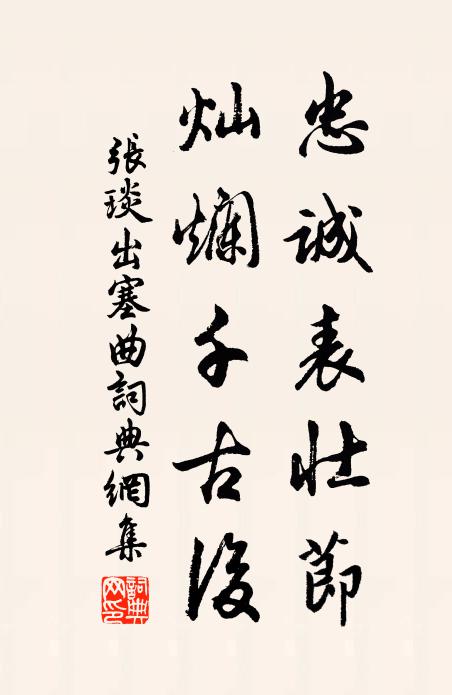 忠誠表壮節
灿爛千古後
張琰出塞曲詞典網集
詞典网印